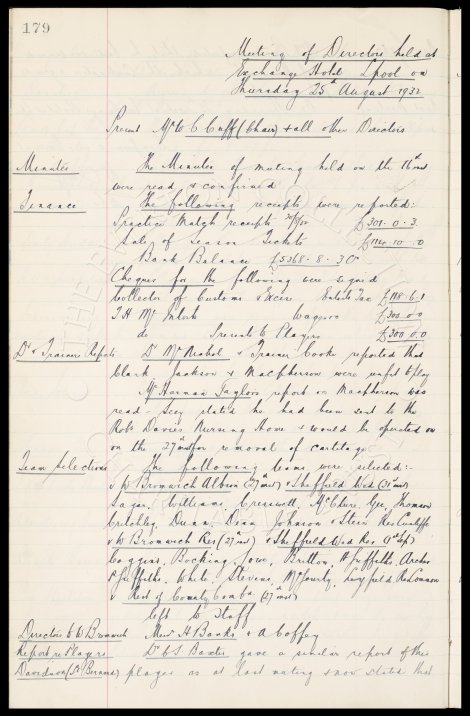 179
Meeting of Directors held at
Exchange Hotel Lpool on
Thursday 25th August 1932
Present Mr W. C. Cuff (Chair) & all other Directors
Minutes The Minutes of meeting held on the 16th inst
were read & confirmed
Finance The following receipts were reported:
Practice Match receipts 20/8/32 £301. 0. 3.
Sales of Season Tickets £1124. 10. 0
Bank Balance £5368. 8. 3
Cheques for the following were signed
Collector of Customs & Excise Entts Tax £118. 6. 1
T. H. McIntosh Wages £300. 0. 0
do Presents to Players £300. 0. 0
Dr & Trainers Reports Dr McNichol & Trainer Cooke reported that
Clark Jackson & Macpherson were unfit to play
Mr Norman Taylors report on Macpherson was
read - Secy stated he had been sent to the
Robt Davies Nursing Home & would be operated on
on the 27th inst for removal of cartilage
Team Selections The following teams were selected:-
v W Bromwich Albion (27th inst) v Sheffield Wed (31st inst)
Sagar, Williams, Cresswell, McClure, Gee, Thomson
Critchley, Dunn, Dean, Johnson & Stein Res Cunliffe
v W Bromwich Res (27th inst) v Sheffield Wed Res (1st Sept)
Coggins, Bocking, Lowe, Britton, H Griffiths, Archer
P. Griffiths, White, Stevens, McGourty,
v Rest of County Comb (27th inst)
left to Staff
Directors to W Bromwich Messrs A Banks & A Coffey
Report re Players Dr C. S. Baxter gave a similar report of this
Davidson (St Bernards) player as at last meeting & now stated that